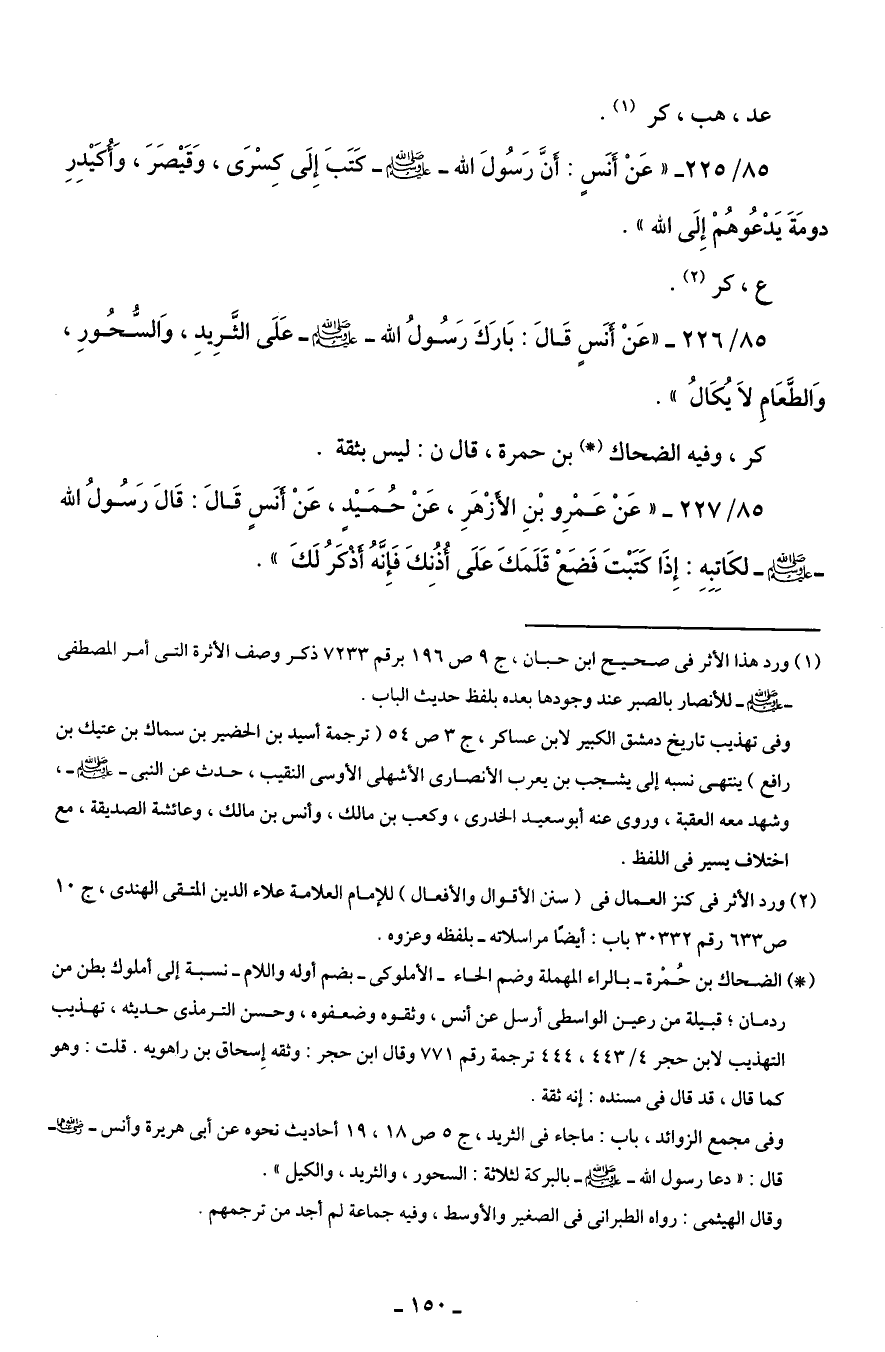 عد ، هب ، كر (١) .
٨٥/ ٢٢٥ـ « عَنْ أَنَسٍ : أَنَّ رَسُولَ الله ـ ﷺ ـ كَتَبَ إِلَى كِسْرَى ، وَقَيْصَرَ ، وَأُكَيْدِرِ
دومَةَ يَدْعُوهُمْ إِلَى الله » .
ع ، كر (٢) .
٨٥/ ٢٢٦ ـ «عَنْ أَنَسٍ قَالَ : بَارَكَ رَسُولُ الله ـ ﷺ ـ عَلَى الثَّرِيدِ ، وَالسُّحُورِ ،
وَالطَّعَامِ لاَ يُكَالُ » .
كر ، وفيه الضحاك (*) بن حمرة ، قال ن : ليس بثقة .
٨٥/ ٢٢٧ ـ « عَنْ عَمْرِو بْنِ الأَزْهَرِ ، عَنْ حُمَيْدٍ ، عَنْ أَنَسٍ قَالَ : قَالَ رَسُولُ الله
ـ ﷺ ـ لكَاتِبِهِ : إِذَا كَتَبْتَ فَضَعْ قَلَمَكَ عَلَى أُذُنِكَ فَإِنَّهُ أَذْكَرُ لَكَ » .
(١) ورد هذا الأثر فى صحيح ابن حبان ، ج ٩ ص ١٩٦ برقم ٧٢٣٣ ذكر وصف الأثرة التى أمر المصطفى
ـ ﷺ ـ للأنصار بالصبر عند وجودها بعده بلفظ حديث الباب .
وفى تهذيب تاريخ دمشق الكبير لابن عساكر ، ج ٣ ص ٥٤ ( ترجمة أسيد بن الحضير بن سماك بن عتيك بن
رافع ) ينتهى نسبه إلى يشجب بن يعرب الأنصارى الأشهلى الأوسى النقيب ، حدث عن النبى ـ ﷺ ـ ،
وشهد معه العقبة ، وروى عنه أبوسعيد الخدرى ، وكعب بن مالك ، وأنس بن مالك ، وعائشة الصديقة ، مع
اختلاف يسير فى اللفظ .
(٢) ورد الأثر فى كنز العمال فى ( سنن الأقوال والأفعال ) للإمام العلامة علاء الدين المتقى الهندى ، ج ١٠
ص٦٣٣ رقم ٣٠٣٣٢ باب : أيضًا مراسلاته ـ بلفظه وعزوه .
(*) الضحاك بن حُمْرة ـ بالراء المهملة وضم الحاء ـ الأملوكى ـ بضم أوله واللام ـ نسبة إلى أملوك بطن من
ردمان ؛ قبيلة من رعين الواسطى أرسل عن أنس ، وثقوه وضعفوه ، وحسن الترمذى حديثه ، تهذيب
التهذيب لابن حجر ٤/ ٤٤٣ ، ٤٤٤ ترجمة رقم ٧٧١ وقال ابن حجر : وثقه إسحاق بن راهويه . قلت : وهو
كما قال ، قد قال فى مسنده : إنه ثقة .
وفى مجمع الزوائد ، باب : ماجاء فى الثريد ، ج ٥ ص ١٨ ، ١٩ أحاديث نحوه عن أبى هريرة وأنس ـ رضي الله عنهما ـ
قال : « دعا رسول الله ـ ﷺ ـ بالبركة لثلاثة : السحور ، والثريد ، والكيل » .
وقال الهيثمى : رواه الطبرانى فى الصغير والأوسط ، وفيه جماعة لم أجد من ترجمهم .
ـ ١٥٠ ـ